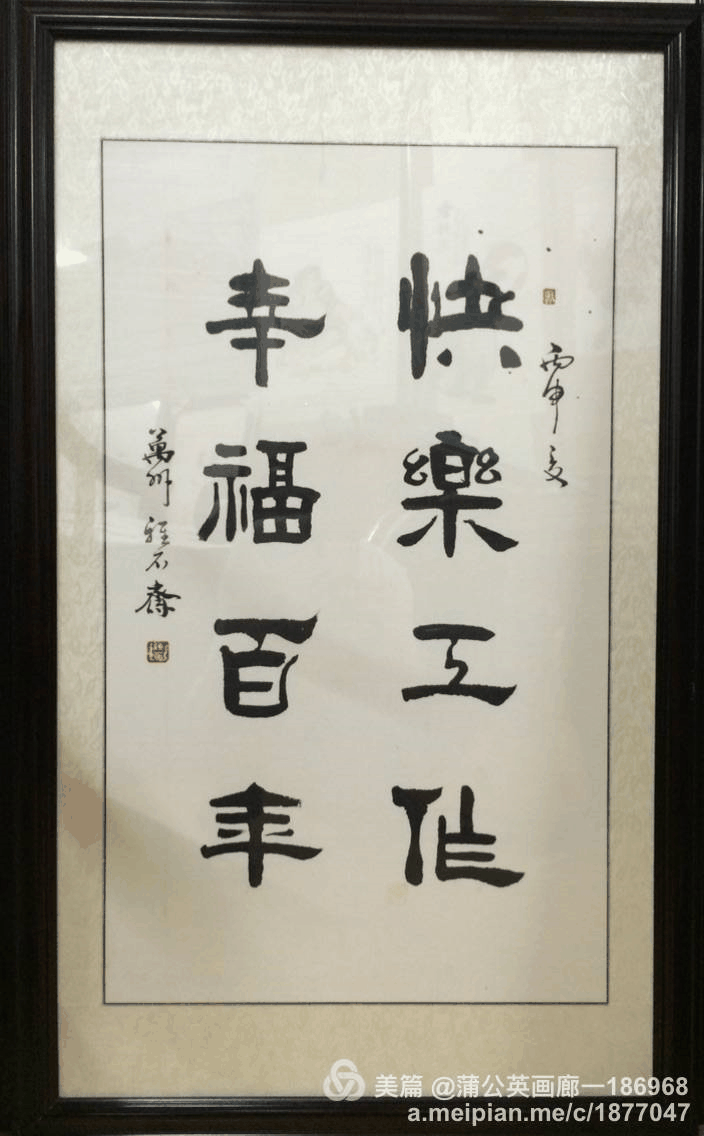 丙申夏
快樂工作
幸福百年
萬州雅石齋
美篇 @蒲公英画廊一186968
a.meipian.me/c/1877047